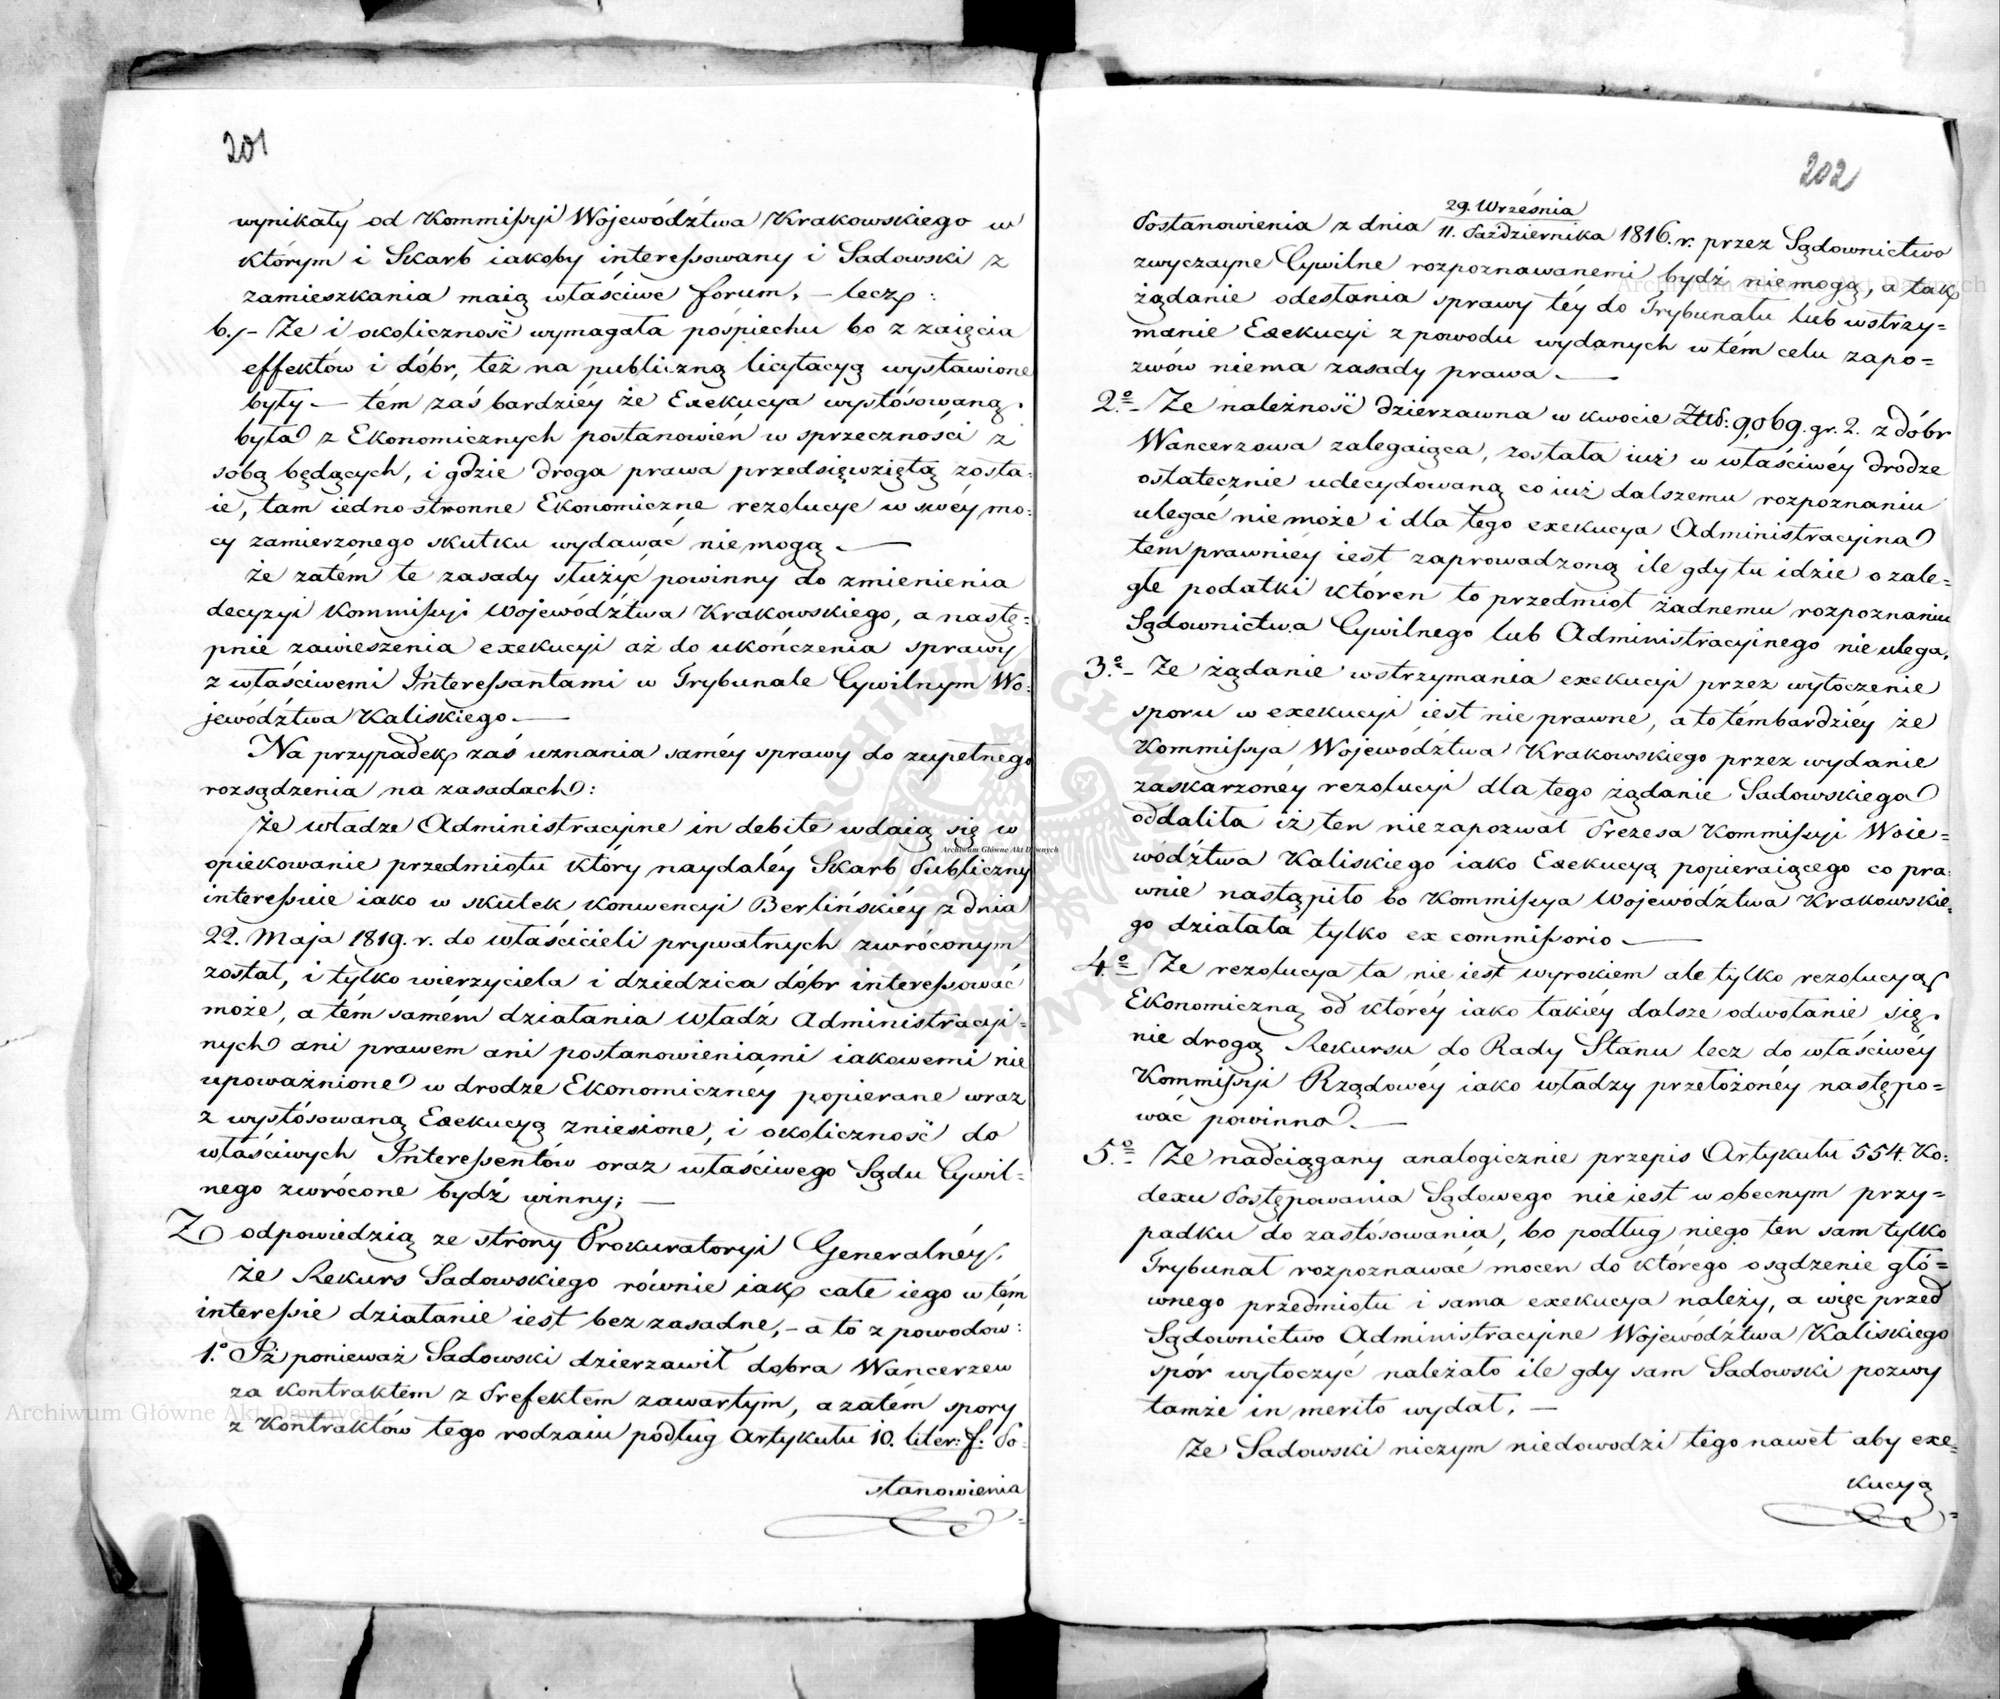 201
wynikały od Kommissyi Województwa Krakowskiego w
którym i Skarb iakoby interessowany i Sadowski z
zamieszkania maią właściwe forum, — lecz:
b,— Że i okoliczność wymagała pośpiechu bo z zaięcia
effektów i dóbr, też na publiczną licytacyą wystawione
były — tém zaś bardziéy że Exekucya wystósowaną
była z Ekonomicznych postanowień w sprzeczności z
sobą będących, i gdzie droga prawa przedsięwziętą zosta=
ie, tam iednostronne Ekonomiczne rezolucye w swéy mo=
cy zamierzonego skutku wydawać niemogą. —
że zatém te zasady służyć powinny do zmienienia
decyzyi Kommissyi Województwa Krakowskiego, a nastę=
pnie zawieszenia exekucyi aż do ukończenia sprawy
z właściwemi Interessantami w Trybunale Cywilnym Wo=
jewództwa Kaliskiego. —
Na przypadek zaś uznania saméy sprawy do zupełnego
rozsądzenia na zasadach:
Że władze Administracyine in debite wdaią się w
opiekowanie przedmiotu który naydaléy Skarb Publiczny
interessuie iako w skutek Konwencyi Berlińskiéy z dnia
22. Maja 1819. r. do właścicieli prywatnych zwróconym
został, i tylko wierzyciela i dziedzica dóbr interessować
może, a tém samém działania Władz Administracyi=
nych ani prawem ani postanowieniami iakowemi nie
upoważnione w drodze Ekonomicznéy popierane wraz
z wystósowaną Exekucyą zniesione, i okoliczność do
właściwych Interessentów oraz właściwego Sądu Cywil=
nego zwrócone bydź winny; —
Z odpowiedzią ze strony Prokuratoryi Generalnéy.
Że Rekurs Sadowskiego równie iak całe iego w tém
interessie działanie iest bezzasadne, — a to z powodów:
1.º Iż ponieważ Sadowski dzierzawił dobra Wancerzew
za Kontraktem z Prefektem zawartym, a zatém spory
z Kontraktów tego rodzaiu podług Artykułu 10. liter: f: Po=
stanowienia
202
29. Września
Postanowienia z dnia 11. Października 1816. r. przez Sądownictwo
zwyczayne Cywilne rozpoznawanemi bydź niemogą, a tak
żądanie odesłania sprawy téy do Trybunału lub wstrzy=
manie Exekucyi z powodu wydanych w tém celu zapo=
zwów niema zasady prawa. —
2.º— Że należność dzierzawna w kwocie Złtd: 9,069. gr. 2. z dóbr
Wancerzowa zalegaiąca, została iuż w właściwéy drodze
ostatecznie udecydowaną co iuż dalszemu rozpoznaniu
ulegać niemoże i dla tego exekucya Administracyina
tém prawniéy iest zaprowadzoną ile gdy tu idzie o zale=
głe podatki któren to przedmiot żadnemu rozpoznaniu
Sądownictwa Cywilnego lub Administracyinego nieulega.
3.º— Że żądanie wstrzymania exekucyi przez wytoczenie
sporu w exekucyi iest nieprawne, a to témbardziéy że
Kommissya Województwa Krakowskiego przez wydanie
zaskarzonéy rezolucyi dla tego żądanie Sadowskiego
oddaliła iż ten niezapozwał Prezesa Kommissyi Woie=
wództwa Kaliskiego iako Exekucyą popieraiącego co pra=
wnie nastąpiło bo Kommissya Województwa Krakowskie=
go działała tylko ex commissorio —
4.º— Że rezolucya ta nie iest wyrokiem ale tylko rezolucyą
Ekonomiczną od któréy iako takiéy dalsze odwołanie się
nie drogą Rekursu do Rady Stanu lecz do właściwéy
Kommissyi Rządowéy iako władzy przełożonéy następo=
wać powinno. —
5.º— Że nadciągany analogicznie przepis Artykułu 554. Ko=
dexu Postępowania Sądowego nie iest w obecnym przy=
padku do zastósowania, bo podług niego ten sam tylko
Trybunał rozpoznawać mocen do którego osądzenie głó=
wnego przedmiotu i sama exekucya należy, a więc przed
Sądownictwo Administracyine Województwa Kaliskiego
spór wytoczyć należało ile gdy sam Sadowski pozwy
tamże in merito wydał, —
Że Sadowski niczym niedowodzi tego nawet aby exe=
kucyą
Archiwum Główne Akt Dawnych
Archiwum Główne Akt Dawnych
Archiwum Główne Akt Dawnych